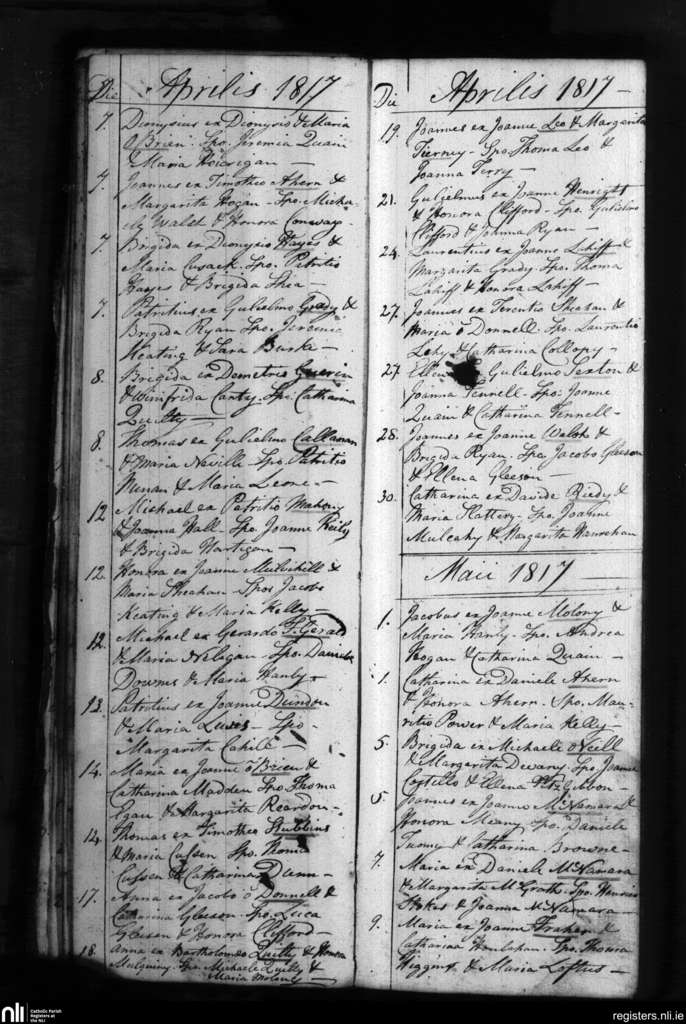 Die Aprilis 1817
7. Dionysius ex Dionysio & Maria
O Brien. Spo. Jeremia Quain
& Maria
7. Joannes ex Timotheo Ahern &
Margarita Hogan - Spo. Micha-
ele Walsh & Honora Conway -
7. Brigida ex Dionysio Hayes &
Maria Cusack. Spo. Patritio
Hayes & Brigida Shea -
7. Patritius ex Gulielmo Grady &
Brigida Ryan Spo. Jeremia
Keating & Sara Burke -
8. Brigida ex Demetrio Guerin
& Winifrida Canty. Spo: Catharina
Quilty -
8. Thomas ex Gulielmo Callanan
& Maria Neville Spo. Patritio
& Maria Leone -
12 Michael ex Patritio Mahony
& Joanna Hall. Spo Joanne Kiely
& Brigida Hartigan -
12. Honora ex Joanne Mulvihill &
Maria Sheahan - Spos Jacobo
Keating & Maria Kelly -
12. Michael ex Gerardo
& Maria Neligan. Spo. Daniele
Downes & Maria Hanly -
13. Patritius ex Joanne Dundon
& Maria - Spo
Margarita Cahill -
14. Maria ex Joanne o Brien &
Catharina Madden Spo. Thoma
Egan & Margarita Reardon -
14. Thomas ex Timotheo Stubbins
& Maria Cussen Spo. Thoma
Cussen & Catharina Dunn -
17. Anna ex Jacobo o Donnell &
Catharina Gleeson - Spo. Luca
Gleeson & Honora Clifford -
18. Anna ex Bartholomeo Quilty & Honora
Mulqueny. Spo. Michaele Quilty &
Maria Molony -
Die Aprilis 1817 -
19. Joannes ex Joanne Leo & Margarita
Tierney - Spo. Thoma Leo &
Joanna Terry -
21. Gulielmus ex Joanne Henright
& Honora Clifford - Spo. Gulielmo
Clifford & Johanna Ryan -
24. Laurentius ex Joanne Lahiff &
Margarita Grady Spo. Thoma
Lahiff & Honora Lahiff -
27. Joannes ex Terentio Sheahan &
Maria o Donnell - Spo. Laurentio
Lehy & Catharina Collopy -
27. Ellena Gulielmo Sexton &
Joanna Fennell - Spo: Joanne
Quain & Catharina Fennell -
28. Joannes ex Joanne Walsh &
Brigida Ryan. Spo Jacobo Gleeson
& Ellena Gleeson -
30. Catharina ex Davide Riedy &
Maria Slattery - Spo. Joanne
Mulcahy & Margarita
Maii 1817 -
1. Jacobus ex Joanne Molony &
Maria Hanly - Spo. Andrea
Hogan & Catharina Quain -
1. Catharina ex Daniele Ahern
& Honora Ahern - Spo. Mau-
ritio Power & Maria Kelly -
5. Brigida ex Michaele o Neill
& Margarita Devany. Spo Joanne
Costello & Ellena Fitz Gibbon -
5. Joannes ex Joanne McNamara &
Honora Meany Spo. Daniele
Tuomy & Catharina Browne -
7. Maria ex Daniele McNamara
& Margarita McGrath - Spo. Henrico
Stokes & Joanna McNamara -
9. Maria ex Joanne Fraher &
Catharina Houlahan - Spo. Thoma
Higgins & Maria Loftus -
nli Catholic Parish
Registers at
the NLI
registers.nli.ie